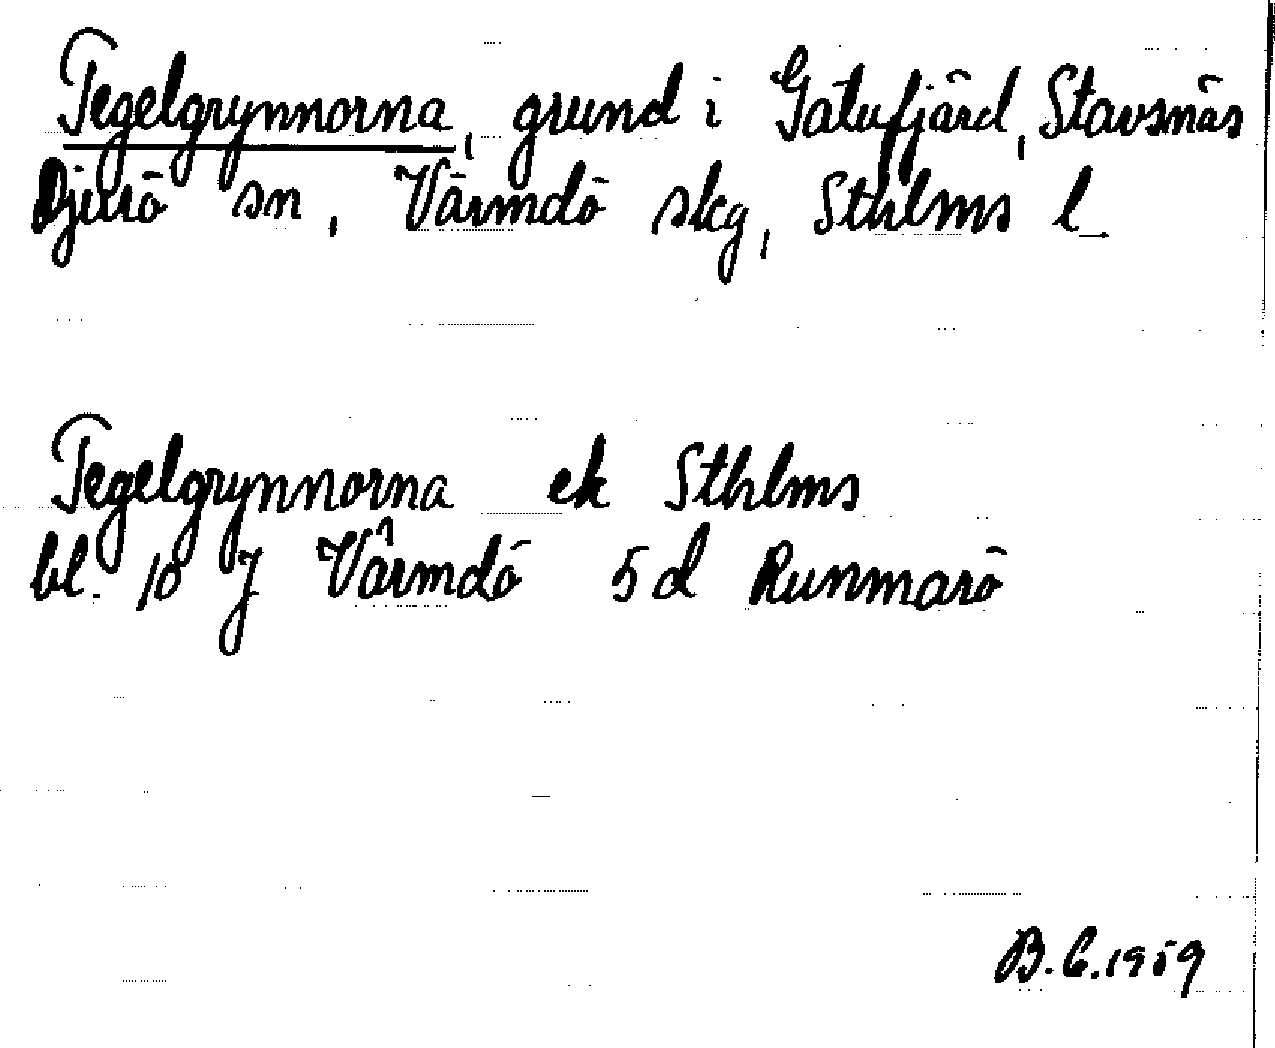 Tegelgrynnorna, grund i Gatufjärd, Stavsnäs
Djurö sn, Värmdö skg, Sthlms l
Tegelgrynnorna ek Sthlms
bl. 10 J Värmdö 5d Runmarö
B.C. 1959